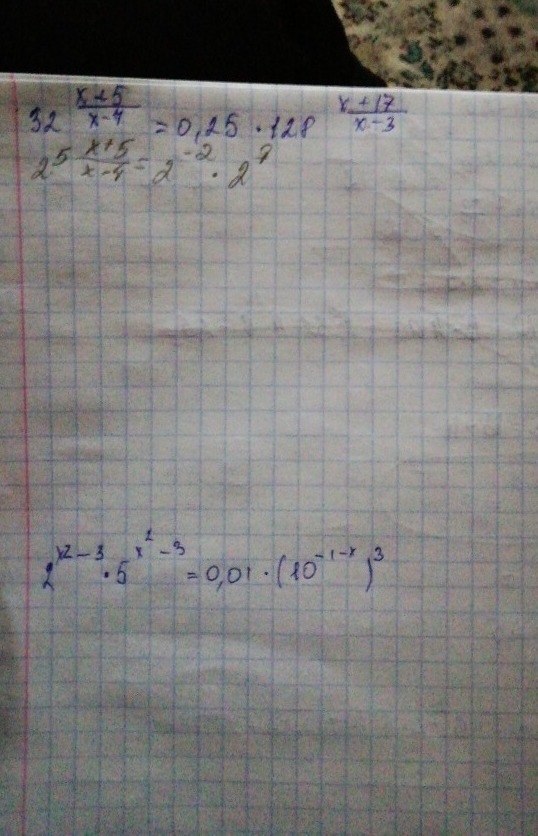 32^((x+5)/(x-7)) = 0,25 · 128^((x+17)/(x-3))
2^(5 (x+5)/(x-7)) = 2^(-2) · 2^7
2^(x2-3) · 5^(x^2-3) = 0,01 · (10^(-1-x))^3